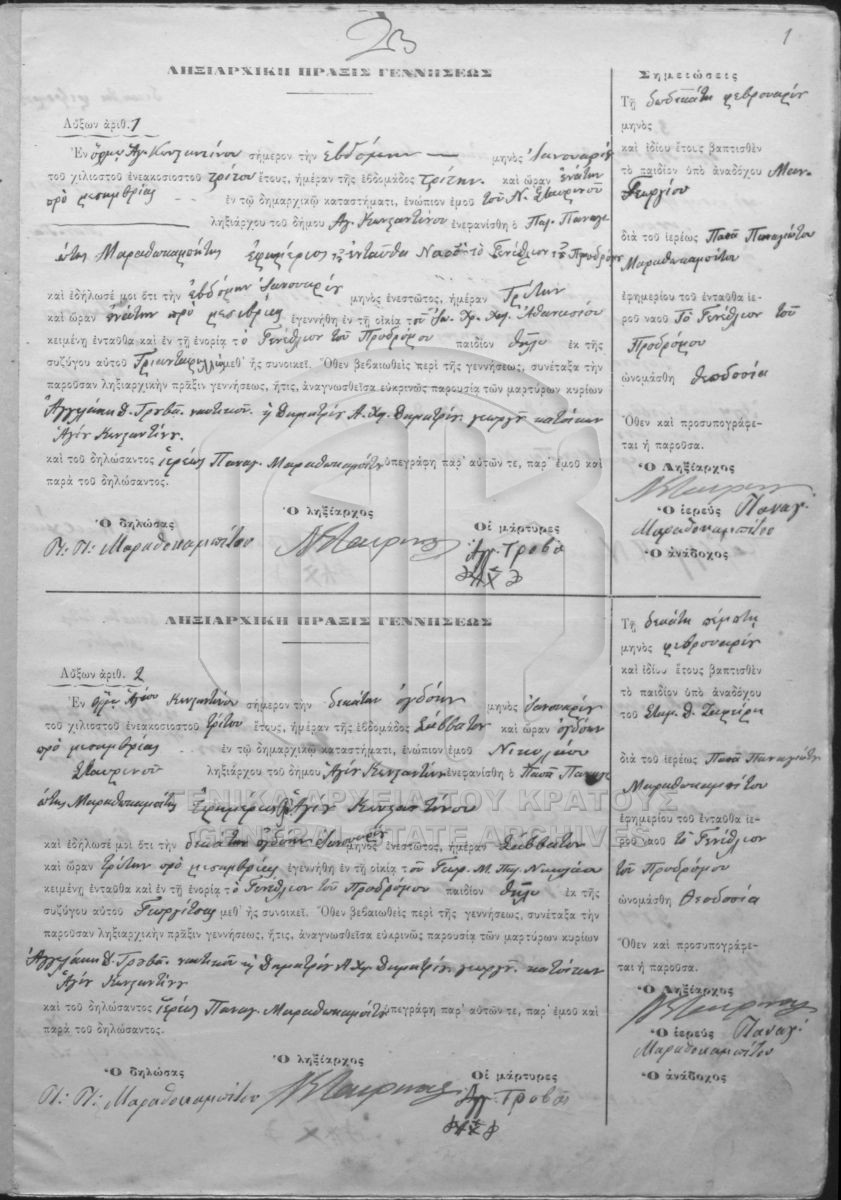 23
1
ΛΗΞΙΑΡΧΙΚΗ ΠΡΑΞΙΣ ΓΕΝΝΗΣΕΩΣ
Αὔξων ἀριθ. 1
Ἐν ὅρμῳ Ἁγ. Κωνσταντίνου σήμερον τὴν ἑβδόμην μηνὸς Ἰανουαρίου
τοῦ χιλιοστοῦ ἐνεακοσιοστοῦ τρίτου ἔτους, ἡμέραν τῆς ἑβδομάδος τρίτην καὶ ὥραν ἐνάτην
πρὸ μεσημβρίας ἐν τῷ δημαρχικῷ καταστήματι, ἐνώπιον ἐμοῦ τοῦ Ν. Σταυρινοῦ
ληξιάρχου τοῦ δήμου Ἁγ. Κωνσταντίνου ἐνεφανίσθη ὁ Παπ. Παναγι
ώτης Μαραθοκαμπίτης ἐφημέριος ἐνταῦθα Ναοῦ τὸ Γενέθλιον τοῦ Προδρόμου
καὶ ἐδήλωσέ μοι ὅτι τὴν ἑβδόμην Ἰανουαρίου μηνὸς ἐνεστῶτος, ἡμέραν Τρίτην
καὶ ὥραν ἐνάτην πρὸ μεσημβρίας ἐγεννήθη ἐν τῇ οἰκίᾳ τοῦ Ἰω. Χρ. Χῃ Ἀθανασίου
κειμένῃ ἐνταῦθα καὶ ἐν τῇ ἐνορίᾳ τὸ Γενέθλιον τοῦ Προδρόμου παιδίον θῆλυ ἐκ τῆς
συζύγου αὐτοῦ Τριανταφυλλιᾶς μεθ' ἧς συνοικεῖ. Ὅθεν βεβαιωθεὶς περὶ τῆς γεννήσεως, συνέταξα τὴν
παροῦσαν ληξιαρχικὴν πρᾶξιν γεννήσεως, ἥτις, ἀναγνωσθεῖσα εὐκρινῶς παρουσίᾳ τῶν μαρτύρων κυρίων
Ἀγγελάκη Δ. Τροβᾶ ναυτικοῦ ἢ Δημητρίου Α. Χῃ Δημητρίου γεωργοῦ κατοίκων
Ἁγίου Κωνσταντίνου
καὶ τοῦ δηλώσαντος ἱερέως Παναγ. Μαραθοκαμπίτου ὑπεγράφη παρ' αὐτῶν τε, παρ' ἐμοῦ καὶ
παρὰ τοῦ δηλώσαντος.
Ὁ δηλώσας Ὁ ληξίαρχος Οἱ μάρτυρες
Π: Π: Μαραθοκαμπίτου Ν Σταυρινός Ἀγ. Τροβᾶ
Σημειώσεις
Τῇ δωδεκάτῃ φεβρουαρίου
μηνὸς
καὶ ἰδίου ἔτους βαπτισθὲν
τὸ παιδίον ὑπὸ ἀναδόχου
Γεωργίου
διὰ τοῦ ἱερέως Παπᾶ Παναγιώτου
Μαραθοκαμπίτου
ἐφημερίου τοῦ ἐνταῦθα ἱε-
ροῦ ναοῦ Τὸ Γενέθλιον τοῦ
Προδρόμου
ὠνομάσθη Θεοδοσία
Ὅθεν καὶ προσυπογράφε-
ται ἡ παροῦσα.
Ὁ Ληξίαρχος
Ν Σταυρινός
Ὁ ἱερεὺς Παναγ.
Μαραθοκαμπίτου
Ὁ ἀνάδοχος
ΛΗΞΙΑΡΧΙΚΗ ΠΡΑΞΙΣ ΓΕΝΝΗΣΕΩΣ
Αὔξων ἀριθ. 2
Ἐν ὅρμῳ Ἁγίου Κωνσταντίνου σήμερον τὴν δεκάτην ὀγδόην μηνὸς Ἰανουαρίου
τοῦ χιλιοστοῦ ἐνεακοσιοστοῦ τρίτου ἔτους, ἡμέραν τῆς ἑβδομάδος Σάββατον καὶ ὥραν ὀγδόην
πρὸ μεσημβρίας ἐν τῷ δημαρχικῷ καταστήματι, ἐνώπιον ἐμοῦ Νικολάου
Σταυρινοῦ ληξιάρχου τοῦ δήμου Ἁγίου Κωνσταντίνου ἐνεφανίσθη ὁ Παπᾶ Παναγι
ώτης Μαραθοκαμπίτης ἐφημέριος Ἁγίου Κωνσταντίνου
καὶ ἐδήλωσέ μοι ὅτι τὴν δεκάτην ὀγδόην Ἰανουαρίου μηνὸς ἐνεστῶτος, ἡμέραν Σάββατον
καὶ ὥραν τρίτην πρὸ μεσημβρίας ἐγεννήθη ἐν τῇ οἰκίᾳ τοῦ Γεωρ. Μ. Παπ. Νικολάου
κειμένῃ ἐνταῦθα καὶ ἐν τῇ ἐνορίᾳ τὸ Γενέθλιον τοῦ Προδρόμου παιδίον θῆλυ ἐκ τῆς
συζύγου αὐτοῦ Γεωργίτσας μεθ' ἧς συνοικεῖ. Ὅθεν βεβαιωθεὶς περὶ τῆς γεννήσεως, συνέταξα τὴν
παροῦσαν ληξιαρχικὴν πρᾶξιν γεννήσεως, ἥτις, ἀναγνωσθεῖσα εὐκρινῶς παρουσίᾳ τῶν μαρτύρων κυρίων
Ἀγγελάκη Δ. Τροβᾶ ναυτικοῦ ἢ Δημητρίου Α. Χῃ Δημητρίου γεωργοῦ κατοίκων
Ἁγίου Κωνσταντίνου
καὶ τοῦ δηλώσαντος ἱερέως Παναγ. Μαραθοκαμπίτου ὑπεγράφη παρ' αὐτῶν τε, παρ' ἐμοῦ καὶ
παρὰ τοῦ δηλώσαντος.
Ὁ δηλώσας Ὁ ληξίαρχος Οἱ μάρτυρες
Π: Π: Μαραθοκαμπίτου Ν Σταυρινός Ἀγ. Τροβᾶς
Τῇ δεκάτῃ πέμπτῃ
μηνὸς φεβρουαρίου
καὶ ἰδίου ἔτους βαπτισθὲν
τὸ παιδίον ὑπὸ ἀναδόχου
τοῦ Σταμ. Δ. Ζαφείρη
διὰ τοῦ ἱερέως Παπᾶ Παναγιώτη
Μαραθοκαμπίτου
ἐφημερίου τοῦ ἐνταῦθα ἱε-
ροῦ ναοῦ τὸ Γενέθλιον
τοῦ Προδρόμου
ὠνομάσθη Θεοδοσία
Ὅθεν καὶ προσυπογράφε-
ται ἡ παροῦσα.
Ὁ Ληξίαρχος
Ν Σταυρινός
Ὁ ἱερεὺς Παναγ.
Μαραθοκαμπίτου
Ὁ ἀνάδοχος
ΓΕΝΙΚΑ ΑΡΧΕΙΑ ΤΟΥ ΚΡΑΤΟΥΣ
GENERAL STATE ARCHIVES